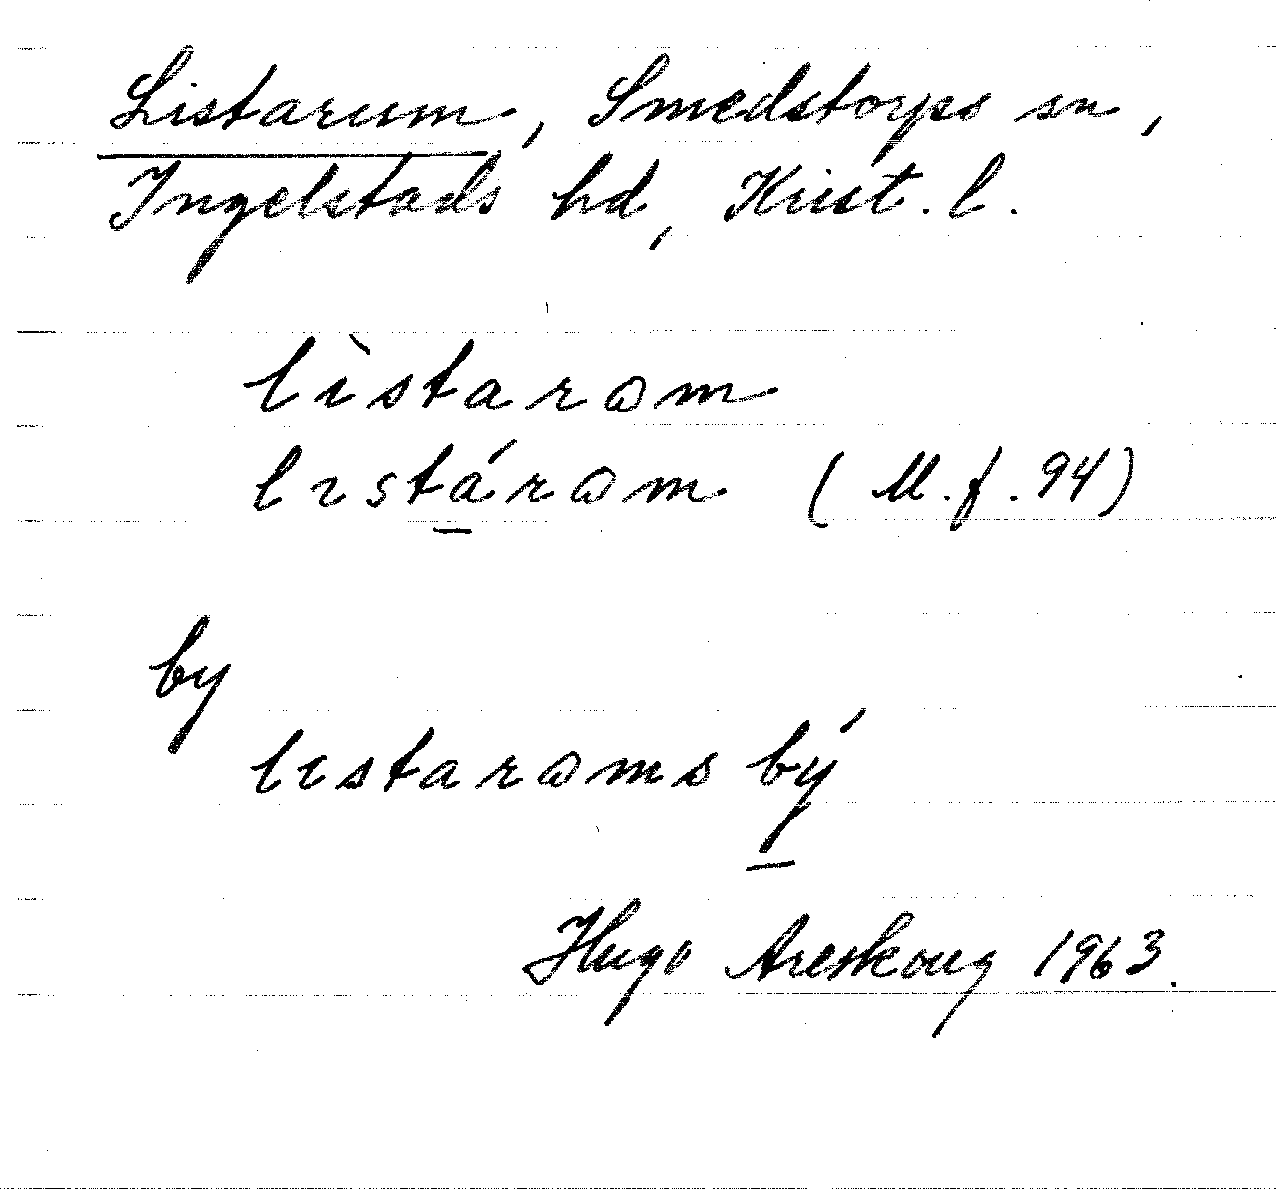 Listarum, Smedstorps sn,
Ingelstads hd, Krist. l.
lìstarωm
lɩstárωm (M.f. 94)
by
lɩstarωms bý
Hugo Areskoug 1963.